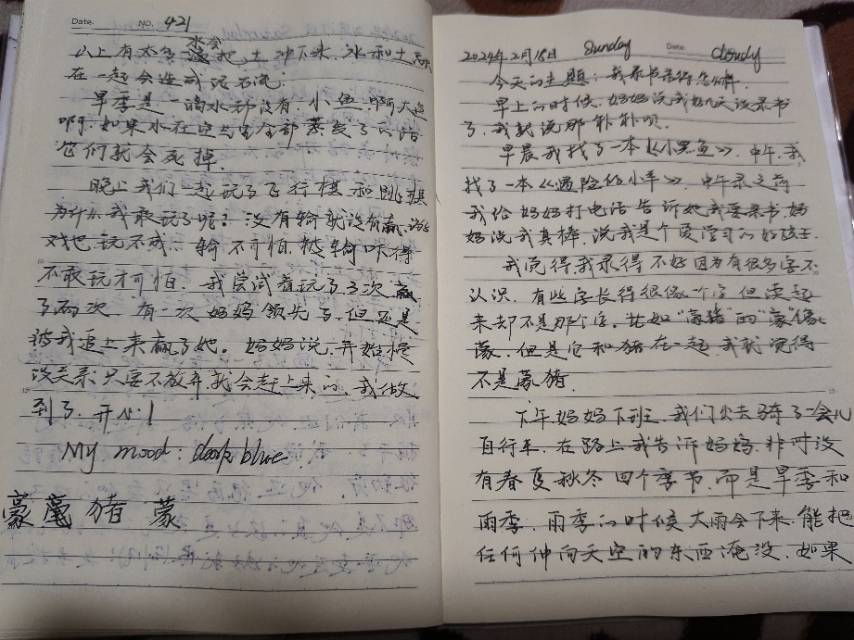 Date. NO. 421
山上有太多水会把土冲下来,水和土混
在一起会造成泥石流。
旱季是一的水都没有,小鱼啊大鱼
啊,如果水在空气里全部蒸发了的话
它们就会死掉。
晚上我们一起玩了飞行棋和跳棋
为什么我敢玩了呢?没有输就没有赢,
戏也玩不成。输不可怕,被输吓得
不敢玩才可怕。我尝试着玩了3次赢
了两次,有一次妈妈领先了,但还是
被我追上来赢了她。妈妈说,开始慢
没关系,只要不放弃就会赶上来的,我做
到了,开心!
My mood: dark blue.
猪 蒙
2024年2月18日 Sunday Date. cloudy
今天的主题:我录书录得怎么样。
早上的时候,妈妈说我好几天没录书
了,我就说那补补呗。
早晨我找了一本《小黑鱼》,中午,我
找了一本《遇险的小羊》,中午录之前
我给妈妈打电话告诉她我要录书,妈
妈说我真棒,说我是个爱学习的好孩子.
我觉得我录得不好因为有很多字不
认识,有些字长得很像一个字但读起
来却不是那个字,比如“豪猪”的“豪”像
蒙,但是它和猪在一起,我就觉得
不是蒙猪.
下午妈妈下班,我们出去骑了一会儿
自行车,在路上我告诉妈妈,非洲没
有春夏秋冬四个季节,而是旱季和
雨季,雨季的时候大雨会下来,能把
任何伸向天空的东西淹没,如果